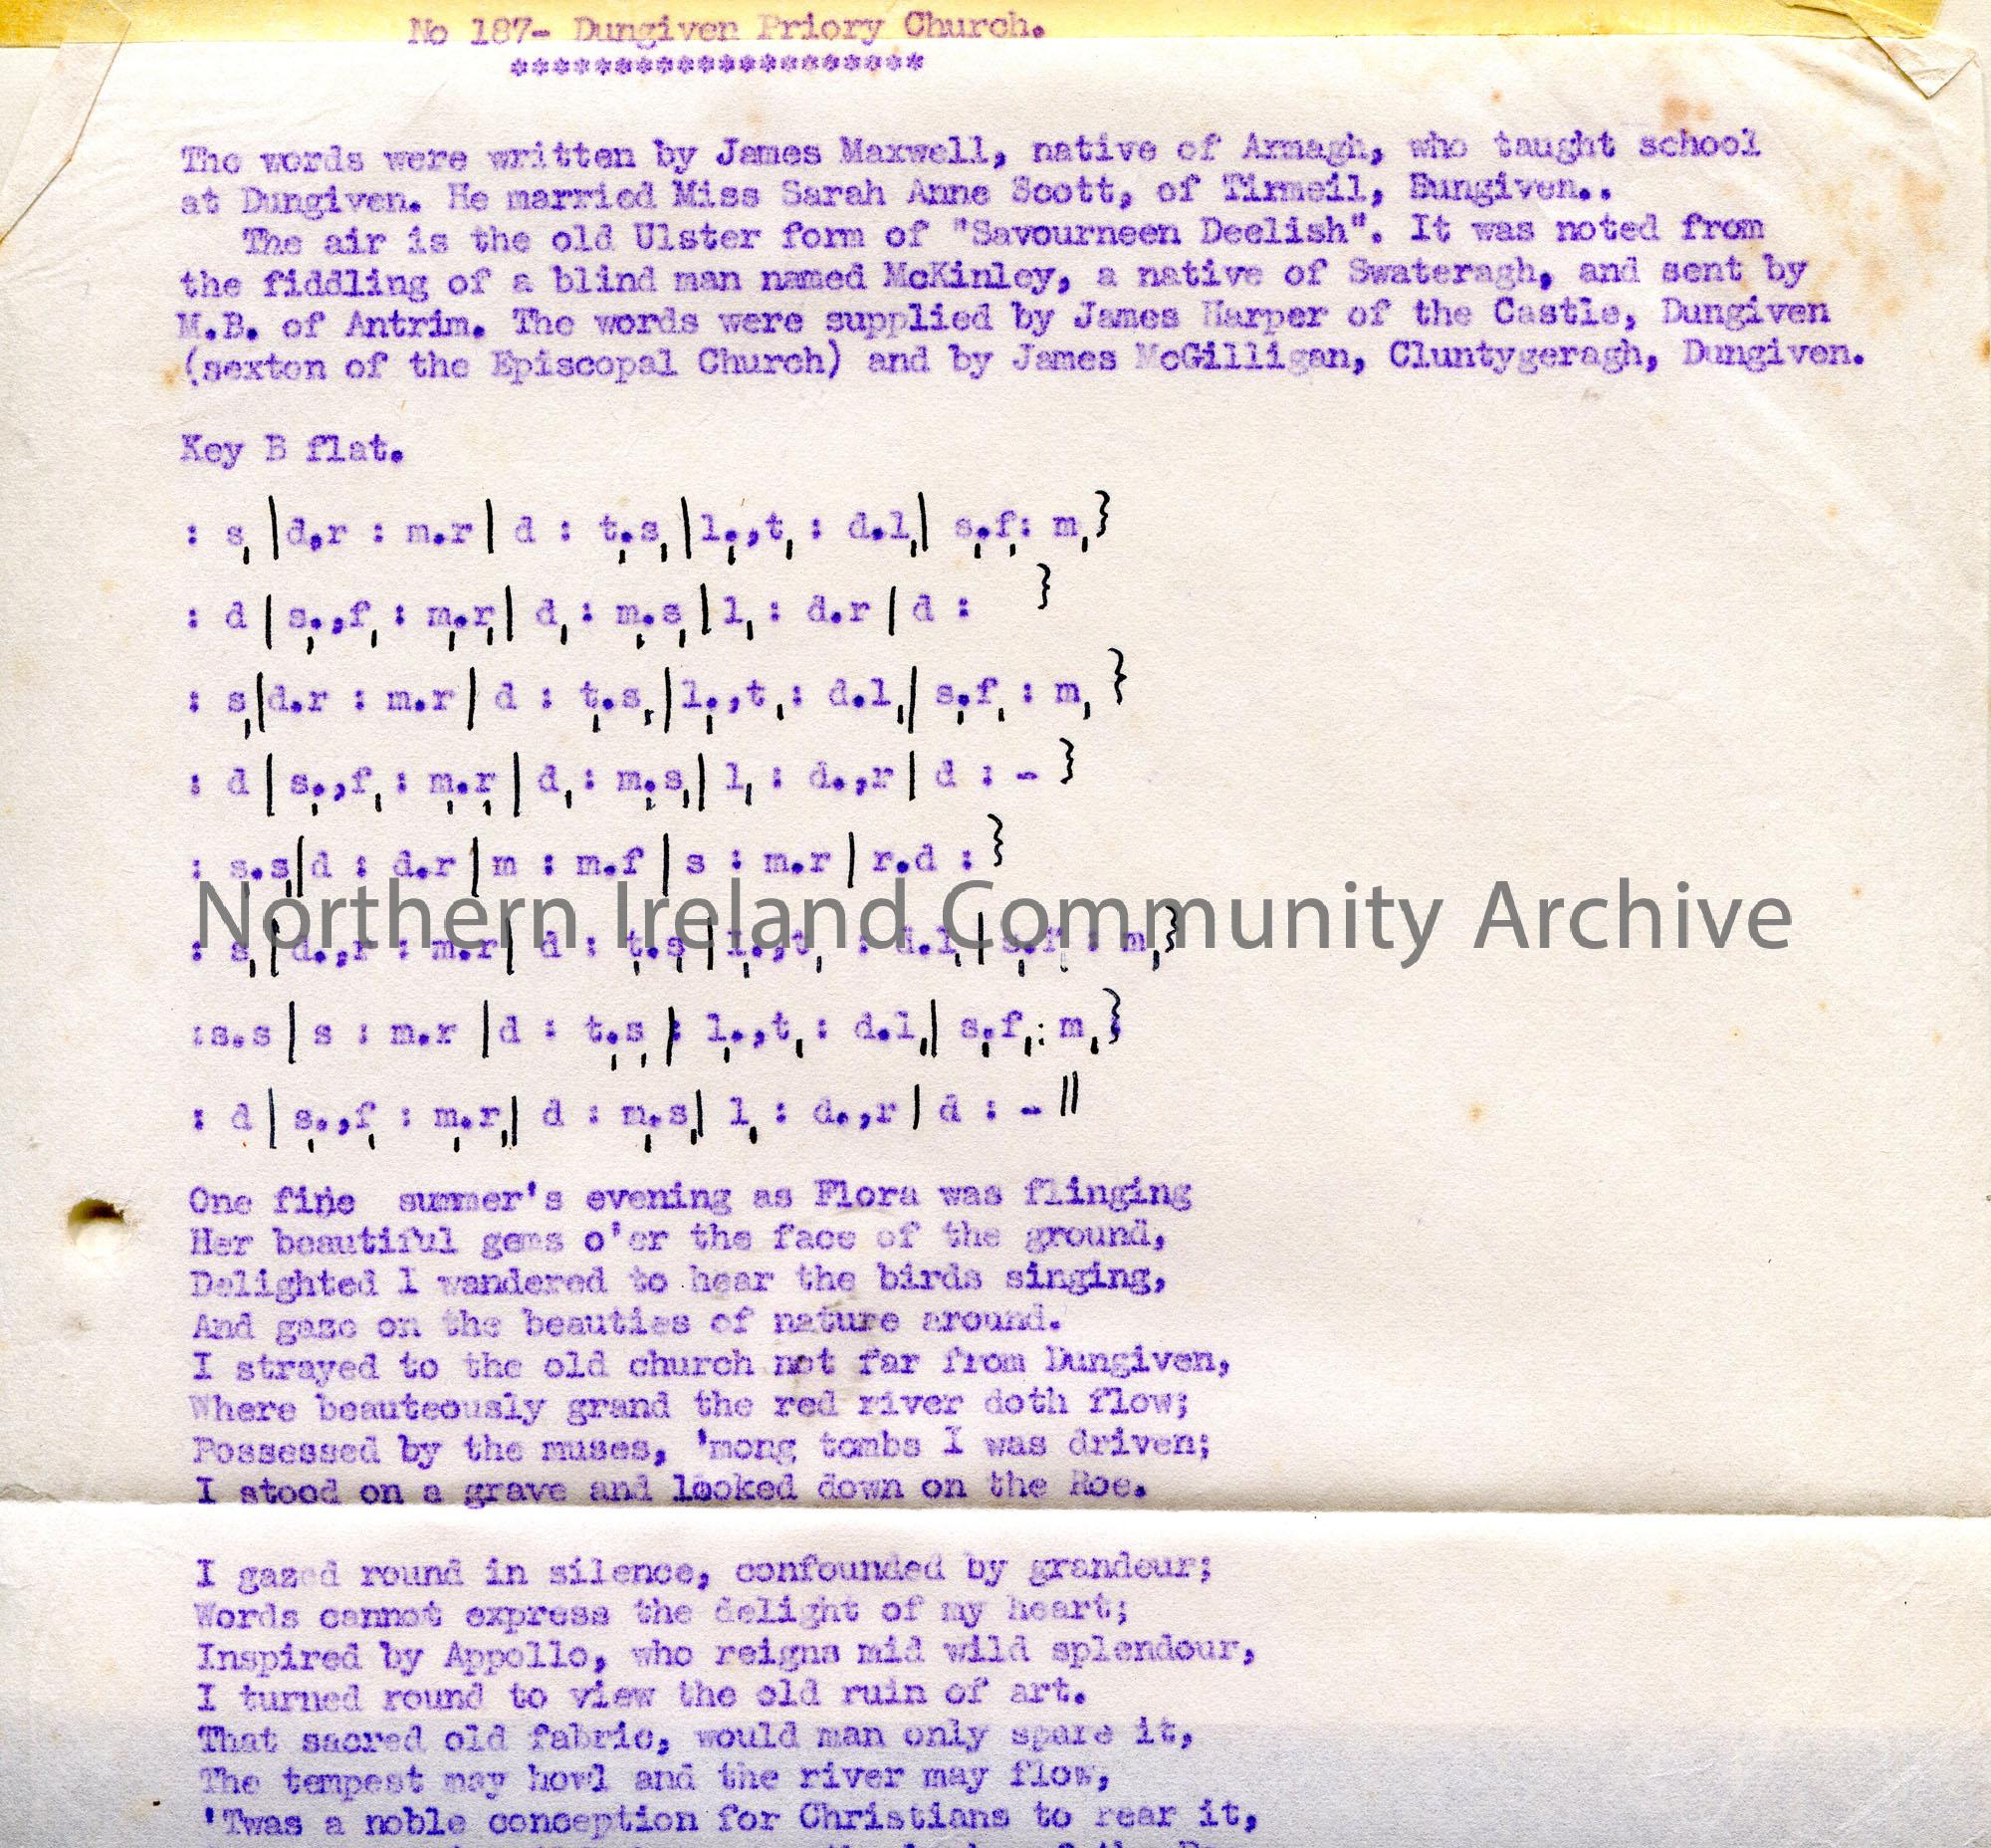 No 187- Dungiven Priory Church.
********************
The words were written by James Maxwell, native of Armagh, who taught school
at Dungiven. He married Miss Sarah Anne Scott, of Tirmeil, Bungiven..
The air is the old Ulster form of "Savourneen Deelish". It was noted from
the fiddling of a blind man named McKinley, a native of Swateragh, and sent by
M.B. of Antrim. The words were supplied by James Harper of the Castle, Dungiven
(sexton of the Episcopal Church) and by James McGilligan, Cluntygeragh, Dungiven.
Key B flat.
: s, |d.r : m.r| d : t,.s, |l,.,t, : d.l,| s,.f,: m, }
: d | s,.,f, : m,.r,| d, : m,.s, | l, : d.r | d : }
: s,|d.r : m.r | d : t,.s, | l,.,t, : d.l,| s,.f, : m, }
: d | s,.,f, : m,.r, | d, : m,.s,| l, : d.,r | d : - }
: s.s|d : d.r | m : m.f | s : m.r | r.d : }
: s,| d.,r : m.r| d : t,.s,| l,.,t, : d.l,| s,.f, : m, }
:s.s | s : m.r | d : t,.s, | l,.,t, : d.l,| s,.f, : m, }
: d | s,.,f, : m,.r,| d : m,.s,| l, : d.,r | d : - ||
Northern Ireland Community Archive
One fine summer's evening as Flora was flinging
Her beautiful gems o'er the face of the ground,
Delighted I wandered to hear the birds singing,
And gaze on the beauties of nature around.
I strayed to the old church not far from Dungiven,
Where beauteously grand the red river doth flow;
Possessed by the muses, 'mong tombs I was driven;
I stood on a grave and looked down on the Roe.
I gazed round in silence, confounded by grandeur;
Words cannot express the delight of my heart;
Inspired by Appollo, who reigns mid wild splendour,
I turned round to view the old ruin of art.
That sacred old fabric, would man only spare it,
The tempest may howl and the river may flow,
'Twas a noble conception for Christians to rear it,